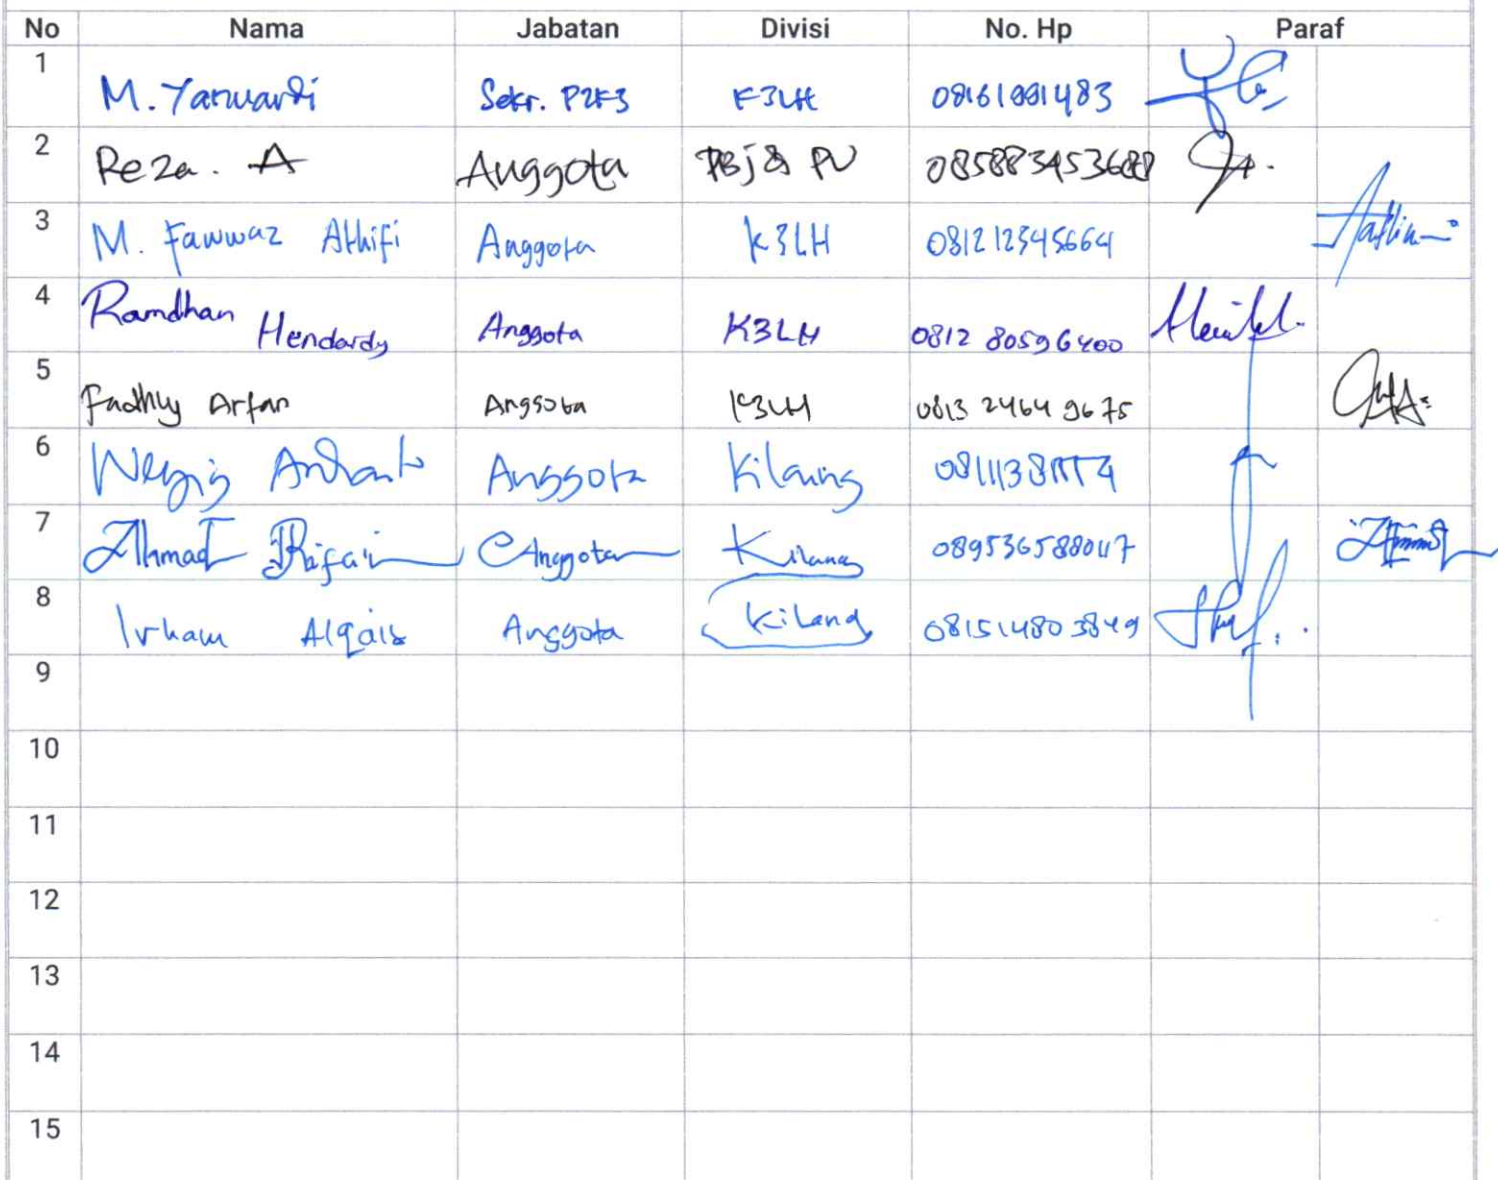 No Nama Jabatan Divisi No. Hp Paraf
1 M. Yanuardi Sekr. P2K3 K3LH 08161991483
2 Reza. A Anggota PBJ & PU 085883453688
3 M. Fawwaz Athifi Anggota K3LH 081212345664
4 Ramdhan Hendardy Anggota K3LH 0812 80596400
5 Fadhly Arfan Anggota K3LH 0813 2464 9675
6 Anggota Kilang
7 Ahmad Rifai Anggota Kilang 089536588047
8 Irham Alqais Anggota Kilang 081514803849
9
10
11
12
13
14
15